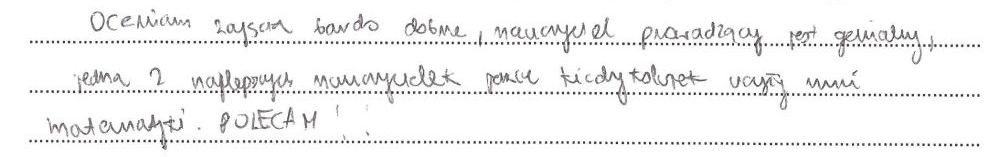 Oceniam zajęcia bardo dobrze, nauczyciel prowadzący jest genialny,
jedna z najlepszych nauczycielek jakie kiedykolwiek uczyły mnie
matematyki. POLECAM!